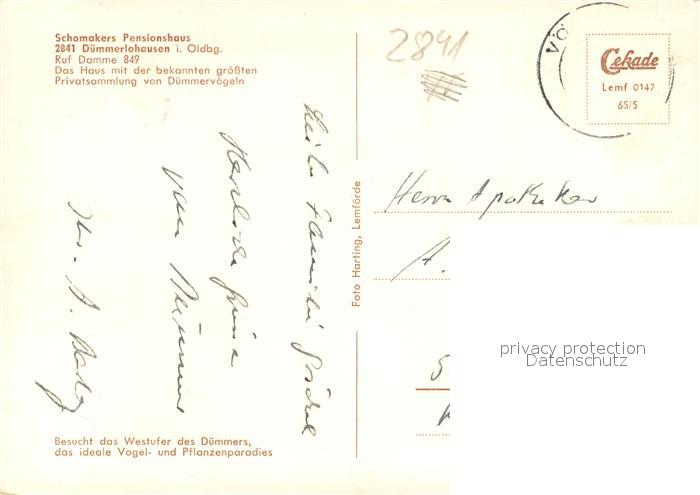 Schomakers Pensionshaus
2841 Dümmerlohausen i. Oldbg.
Ruf Damme 849
Das Haus mit der bekannten größten
Privatsammlung von Dümmervögeln
2841
VÖ
Cekade
Lemf 0147
65/5
Foto Harting, Lemförde
Liebe Familie
Herzliche Grüße
vom Dümmer
Ihr A.
Herrn Apotheker
A.
5
privacy protection
Datenschutz
Besucht das Westufer des Dümmers,
das ideale Vogel- und Pflanzenparadies